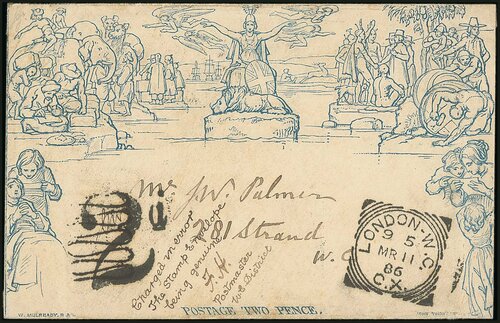 Mr J W. Palmer
281 Strand
W. C
2
d
Charged in error
The Stamp & Envelope
being genuine
F. H.
Postmaster
W.C. District
LONDON·W.C
9 5
MR 11
86
C.X.
POSTAGE TWO PENCE.
W. MULREADY. R.A.